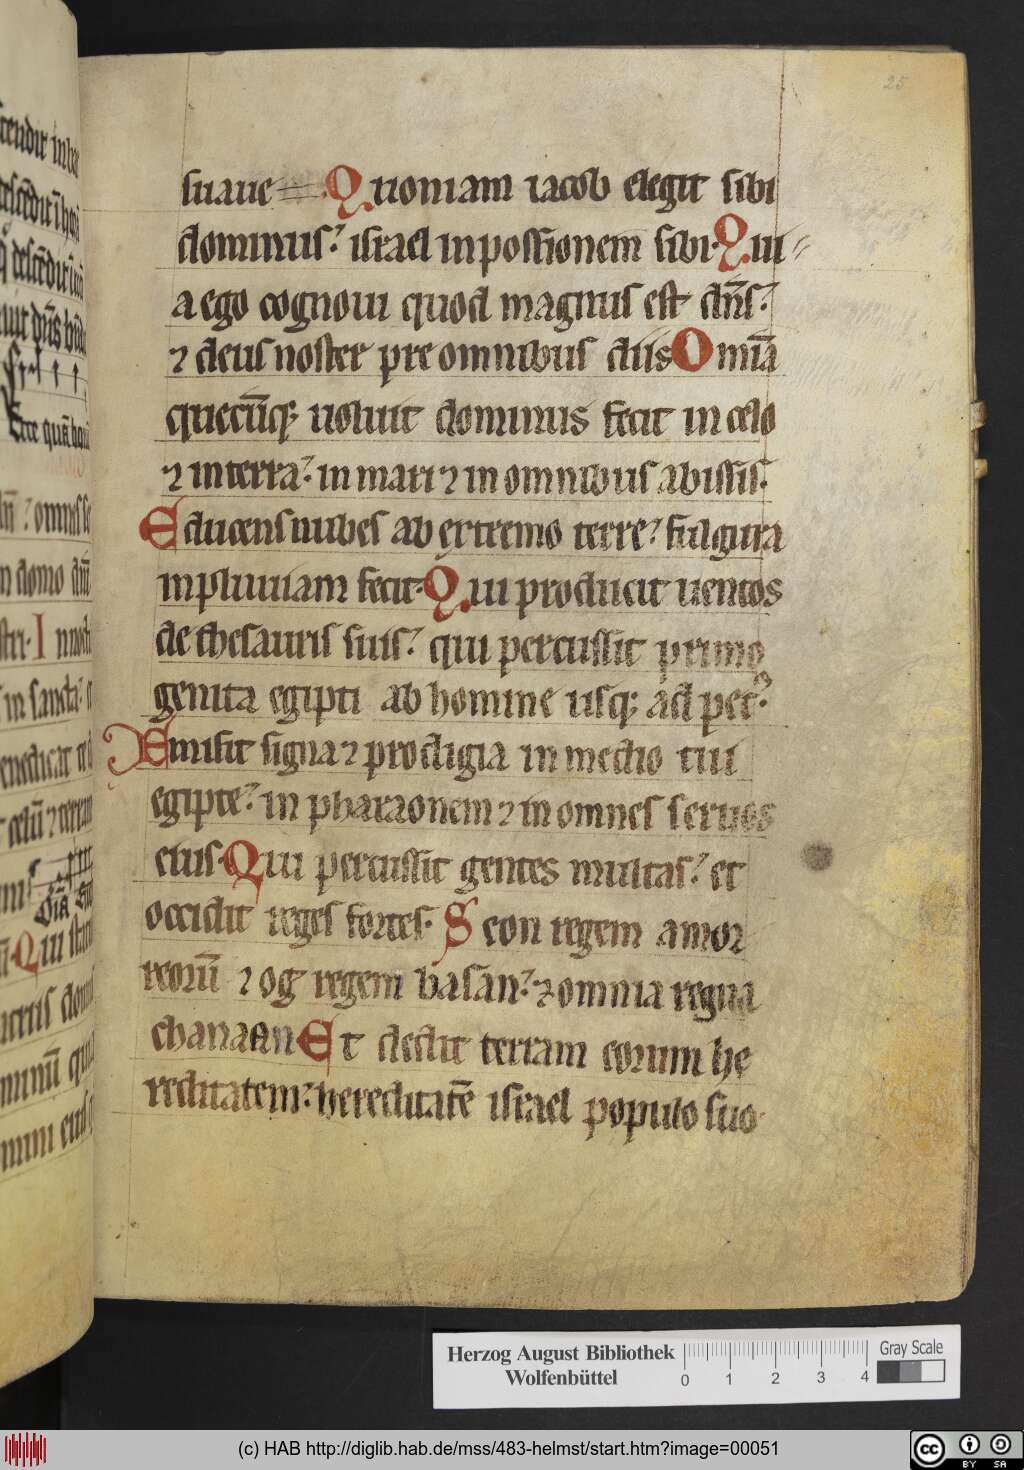 25
suaue Quoniam iacob elegit sibi
dominus? israel in possessionem sibi. Qui
a ego cognoui quod magnus est dn̄s?
⁊ deus noster pre omnibus diis Omīa
quecūq; uoluit dominus fecit in celo
⁊ in terra? in mari ⁊ in omnibus abissis.
Educens nubes ab extremo terre? fulgura
in pluuiam fecit. Qui producit uentos
de thesauris suis? qui percussit primo
genita egipti ab homine usq; ad pec?
Emisit signa ⁊ prodigia in medio tui
egipte? in pharaonem ⁊ in omnes seruos
eius. Qui percussit gentes multas? et
occidit reges fortes. Seon regem amor
reorū ⁊ og regem basan? ⁊ omnia regna
chanaan Et dedit terram eorum he
reditatem? hereditatē israel populo suo.
Herzog August Bibliothek
Wolfenbüttel
0 1 2 3 4
Gray Scale
(c) HAB http://diglib.hab.de/mss/483-helmst/start.htm?image=00051
cc BY SA